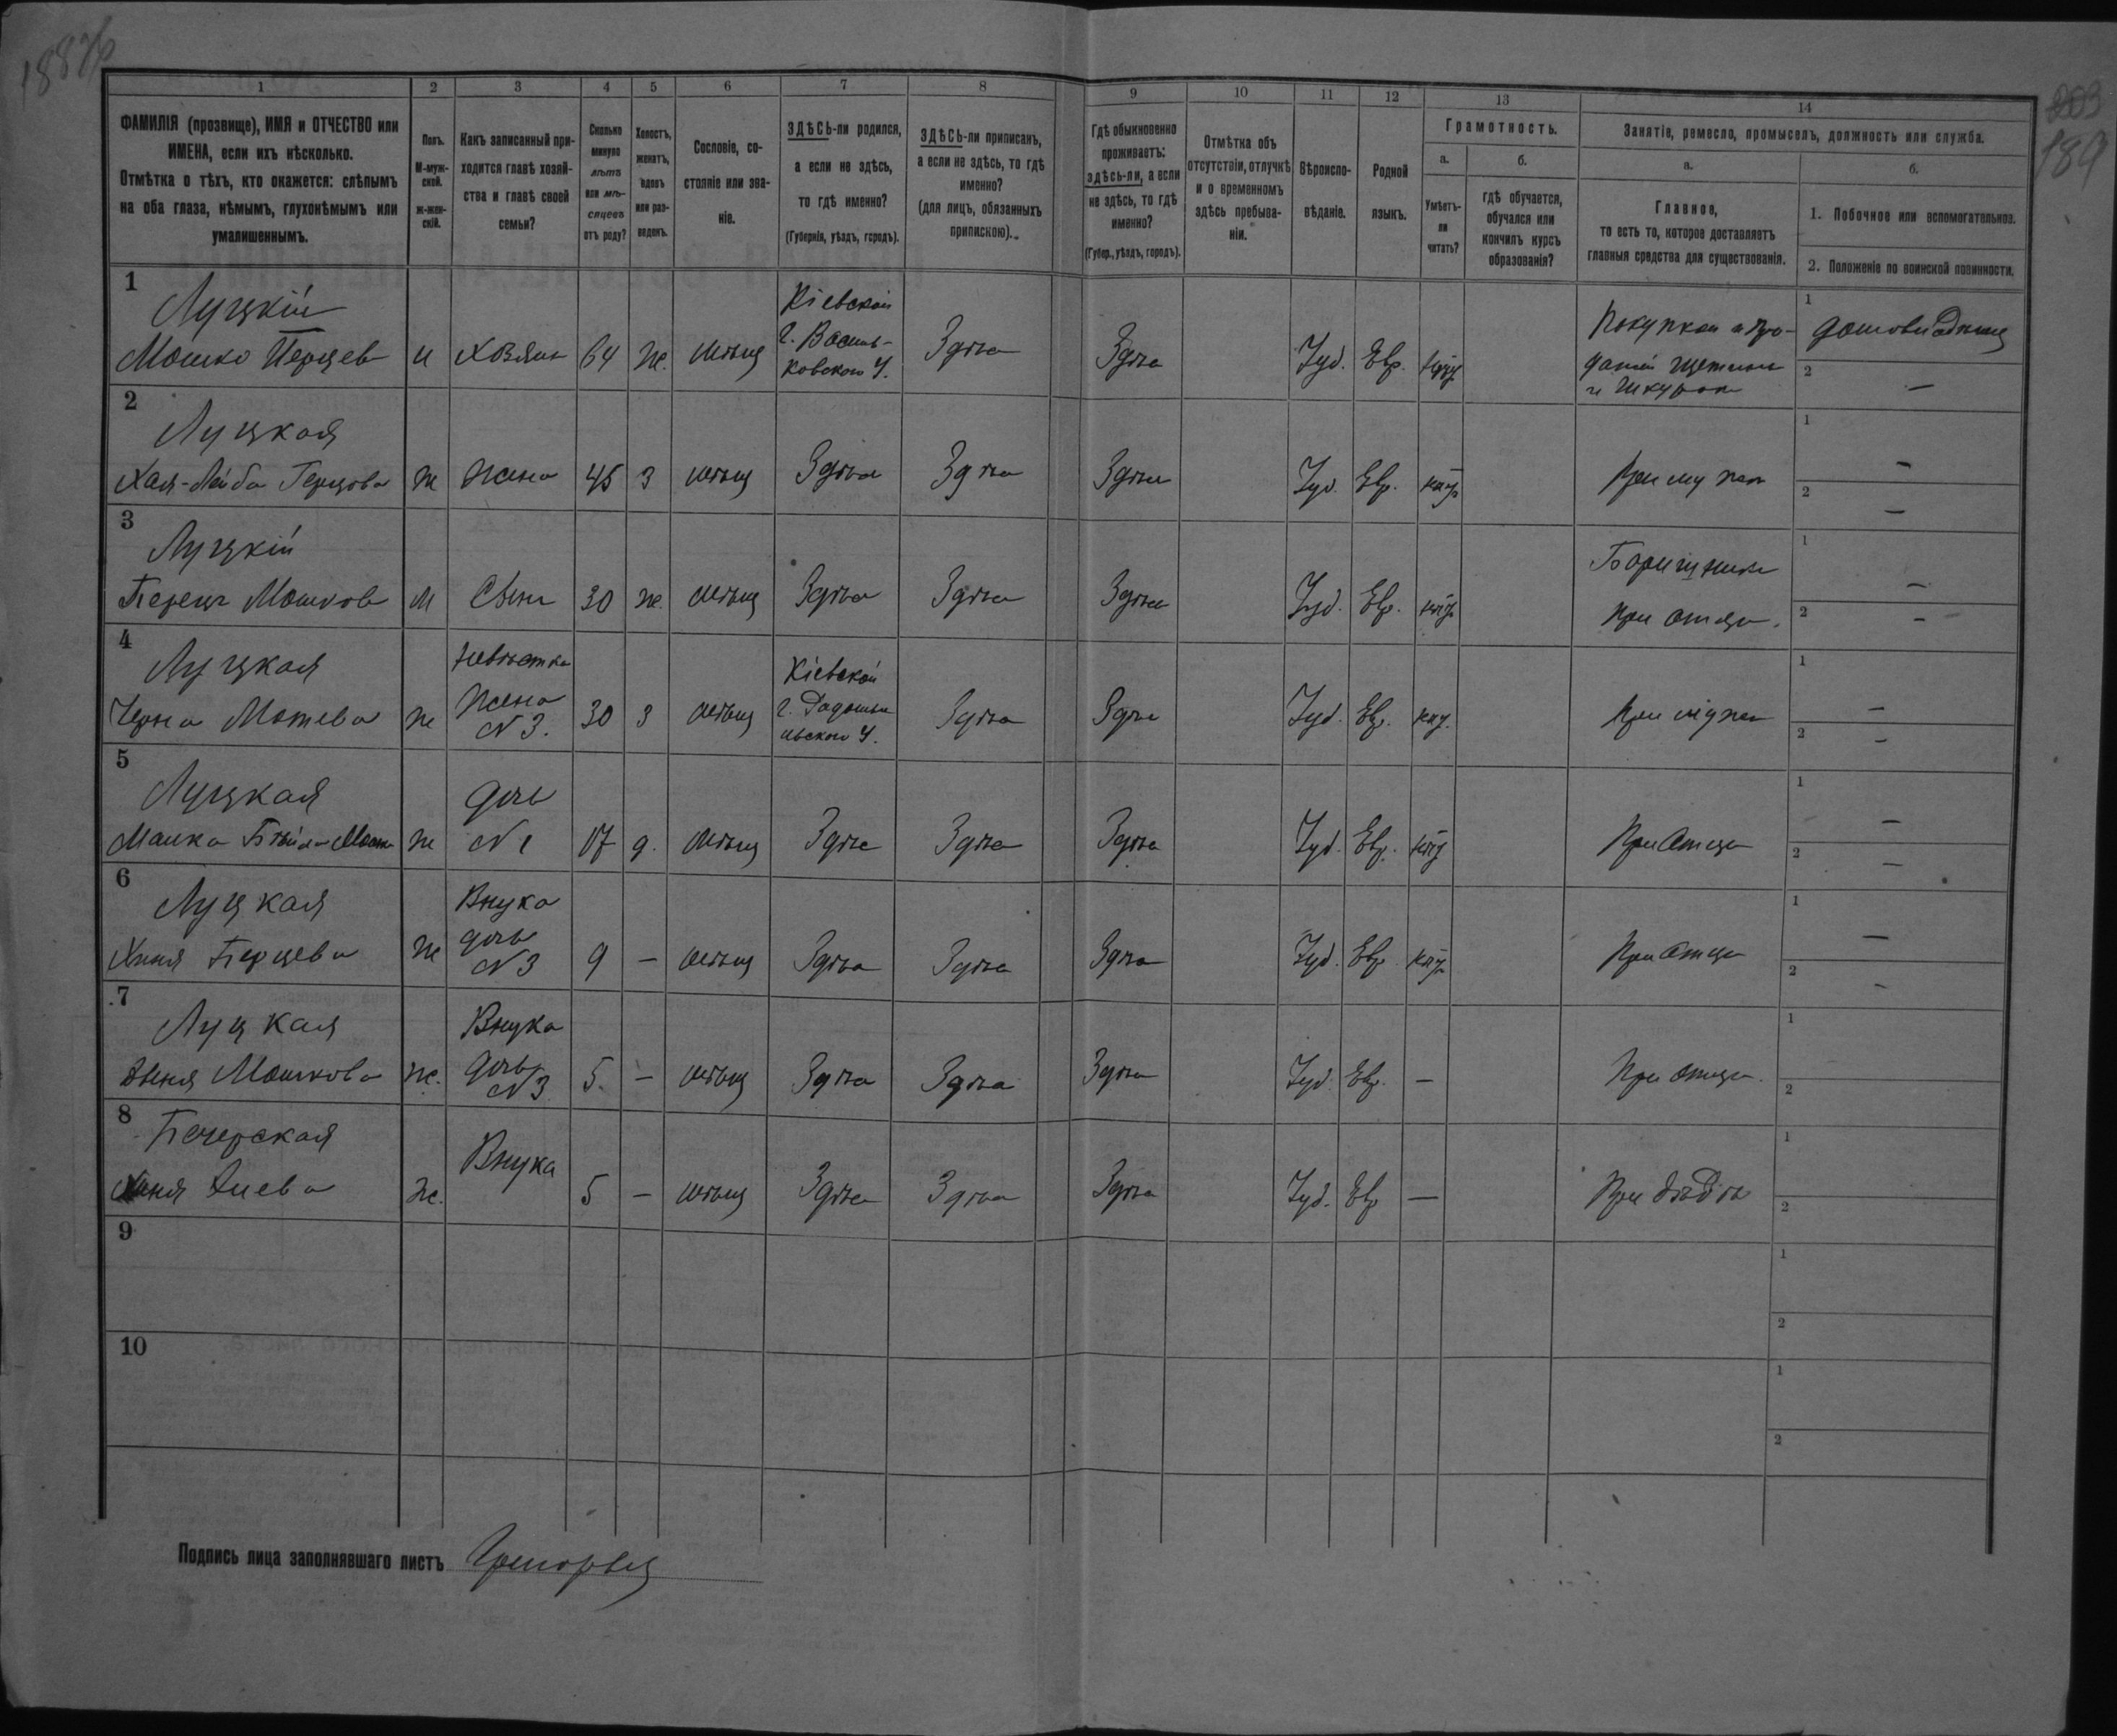 188об
203
189
1 2 3 4 5 6 7 8 9 10 11 12 13 14
ФАМИЛІЯ (прозвище), ИМЯ и ОТЧЕСТВО или
ИМЕНА, если ихъ нѣсколько.
Отмѣтка о тѣхъ, кто окажется: слѣпымъ
на оба глаза, нѣмымъ, глухонѣмымъ или
умалишеннымъ.
Полъ.
М-муж-
ской.
ж-жен-
скій.
Какъ записанный при-
ходится главѣ хозяй-
ства и главѣ своей
семьи?
Сколько
минуло
лѣтъ
или мѣ-
сяцевъ
отъ роду?
Холостъ,
женатъ,
вдовъ
или раз-
веденъ.
Сословіе, со-
стояніе или зва-
ніе.
ЗДѢСЬ-ли родился,
а если не здѣсь,
то гдѣ именно?
(Губернія, уѣздъ, городъ).
ЗДѢСЬ-ли приписанъ,
а если не здѣсь, то гдѣ
именно?
(для лицъ, обязанныхъ
припискою).
Гдѣ обыкновенно
проживаетъ:
здѣсь-ли, а если
не здѣсь, то гдѣ
именно?
(Губер., уѣздъ, городъ).
Отмѣтка объ
отсутствіи, отлучкѣ
и о временномъ
здѣсь пребыва-
ніи.
Вѣроиспо-
вѣданіе.
Родной
языкъ.
Грамотность.
а.
Умѣетъ-
ли
читать?
б.
гдѣ обучается,
обучался или
кончилъ курсъ
образованія?
Занятіе, ремесло, промыселъ, должность или служба.
а.
Главное,
то есть то, которое доставляетъ
главныя средства для существованія.
б.
1. Побочное или вспомогательное.
2. Положеніе по воинской повинности.
1
Луцкій
Мошко Перцев м Хозяин 64 ж. мѣщ
Кіевской
г. Василь-
ковского у.
Здѣсь Здѣсь Іуд. Евр.
Покупкой и про-
дажей щетины
и шкурок
1
2 —
2
Луцкая
Хая-Лейба Герцова ж жена 45 з мѣщ Здѣсь Здѣсь Здѣсь Іуд. Евр.
При муже
1 —
2 —
3
Луцкій
Перец Мошков М Сын 30 ж. мѣщ Здѣсь Здѣсь Здѣсь Іуд. Евр.
при отце.
1 —
2 —
4
Луцкая
Черна Мотева ж
невѣстка
жена
N 3.
30 з мѣщ
Кіевской
г. Радомысль-
ского у.
Здѣсь Здѣсь Іуд. Евр.
При муже
1 —
2 —
5
Луцкая
Малка Бейла Мошк ж
дочь
N 1
17 д. мѣщ Здѣсь Здѣсь Здѣсь Іуд. Евр.
При отце
1 —
2 —
6
Луцкая
Хиня Перцева ж
Внука
дочь
N 3
9 — мѣщ Здѣсь Здѣсь Здѣсь Іуд. Евр.
При отце
1 —
2 -
7
Луцкая
Мошкова ж.
Внука
дочь
N 3
5. — мѣщ Здѣсь Здѣсь Здѣсь Іуд. Евр. —
При отце.
1
2
8
Печерская
ж.
Внука
5 — мѣщ Здѣсь Здѣсь Здѣсь Іуд. Евр —
При дѣдѣ
1
2
9
1
2
10
1
2
Подпись лица заполнявшаго листъ